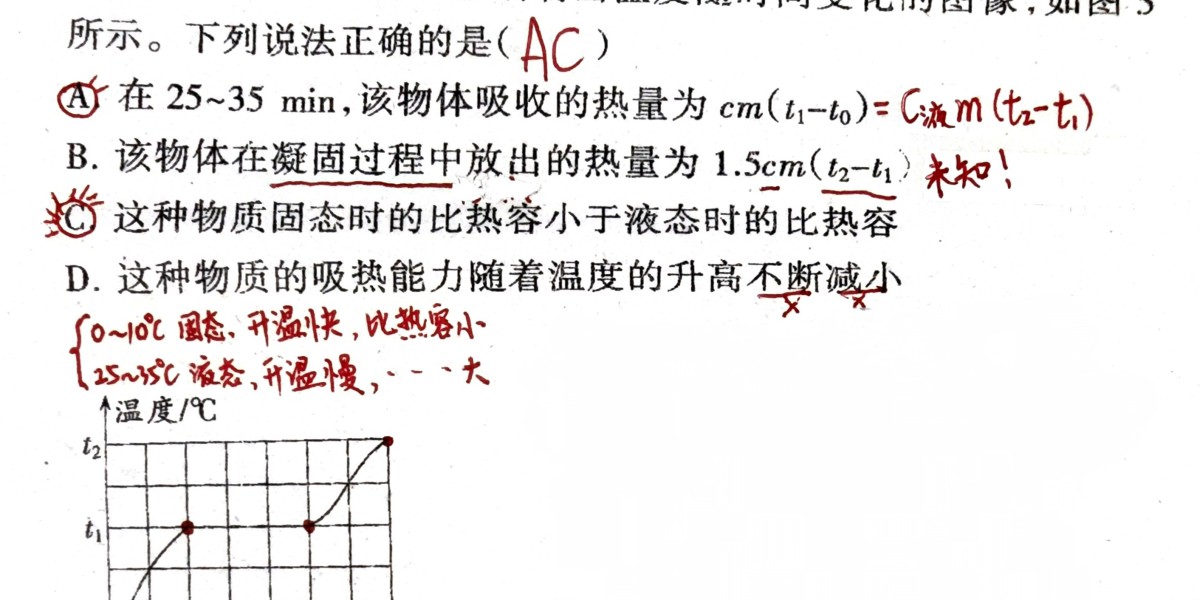 温度随时间变化的图像,如图3
所示。下列说法正确的是(AC)
A 在 25~35 min,该物体吸收的热量为 cm(t₁-t₀)=C液m(t₂-t₁)
B. 该物体在凝固过程中放出的热量为 1.5cm(t₂-t₁) 未知!
C 这种物质固态时的比热容小于液态时的比热容
D. 这种物质的吸热能力随着温度的升高不断减小
× ×
0~10℃ 固态、升温快,比热容小
25~35℃ 液态、升温慢,····大
温度/℃
t₂
t₁